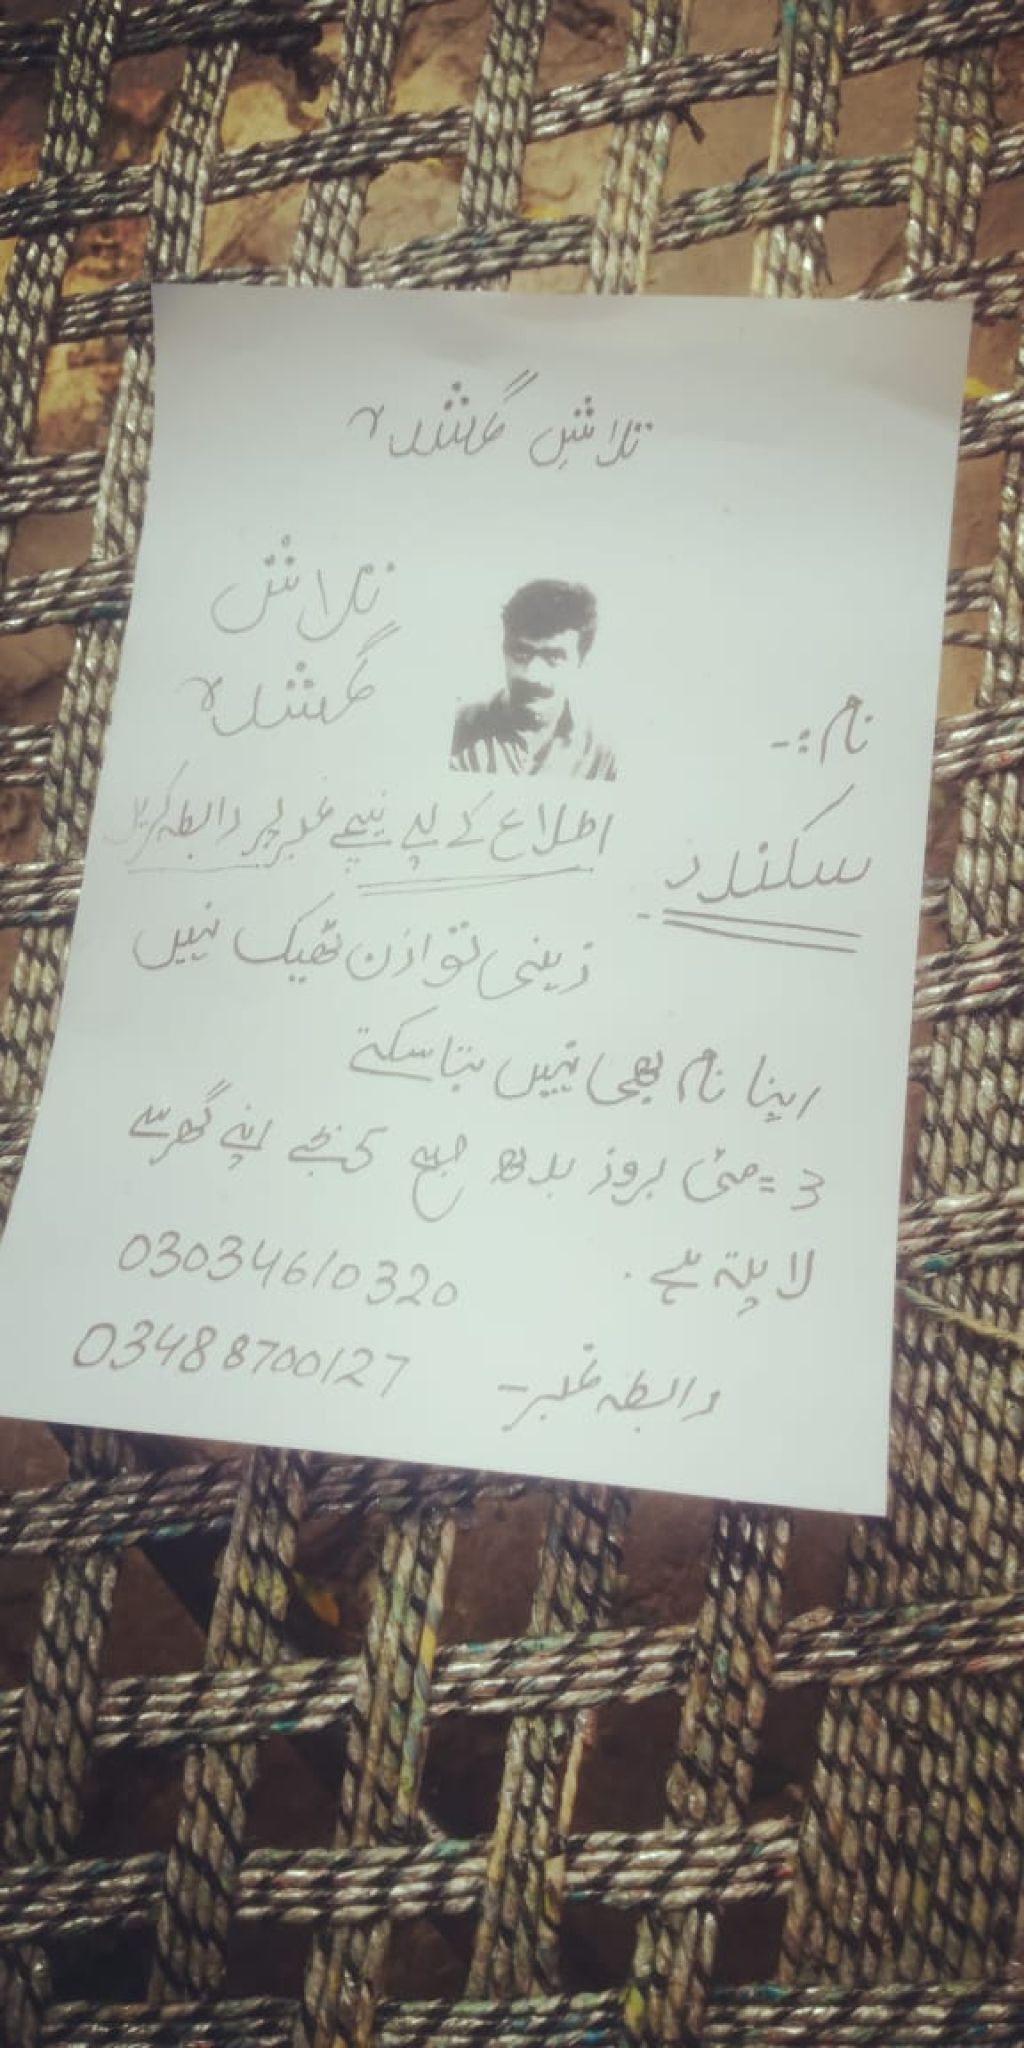 تلاشِ گمشدہ
تلاش
گمشدہ
نام :-
سکندر
اطلاع کے لیے نیچے نمبر پر رابطہ کریں
ذہنی توازن ٹھیک نہیں
اپنا نام بھی نہیں بتا سکتے
3 = مئی بروز بدھ صبح 6 بجے اپنے گھر سے
لا پتہ ہے .
03034610320
03488700127
رابطہ نمبر -